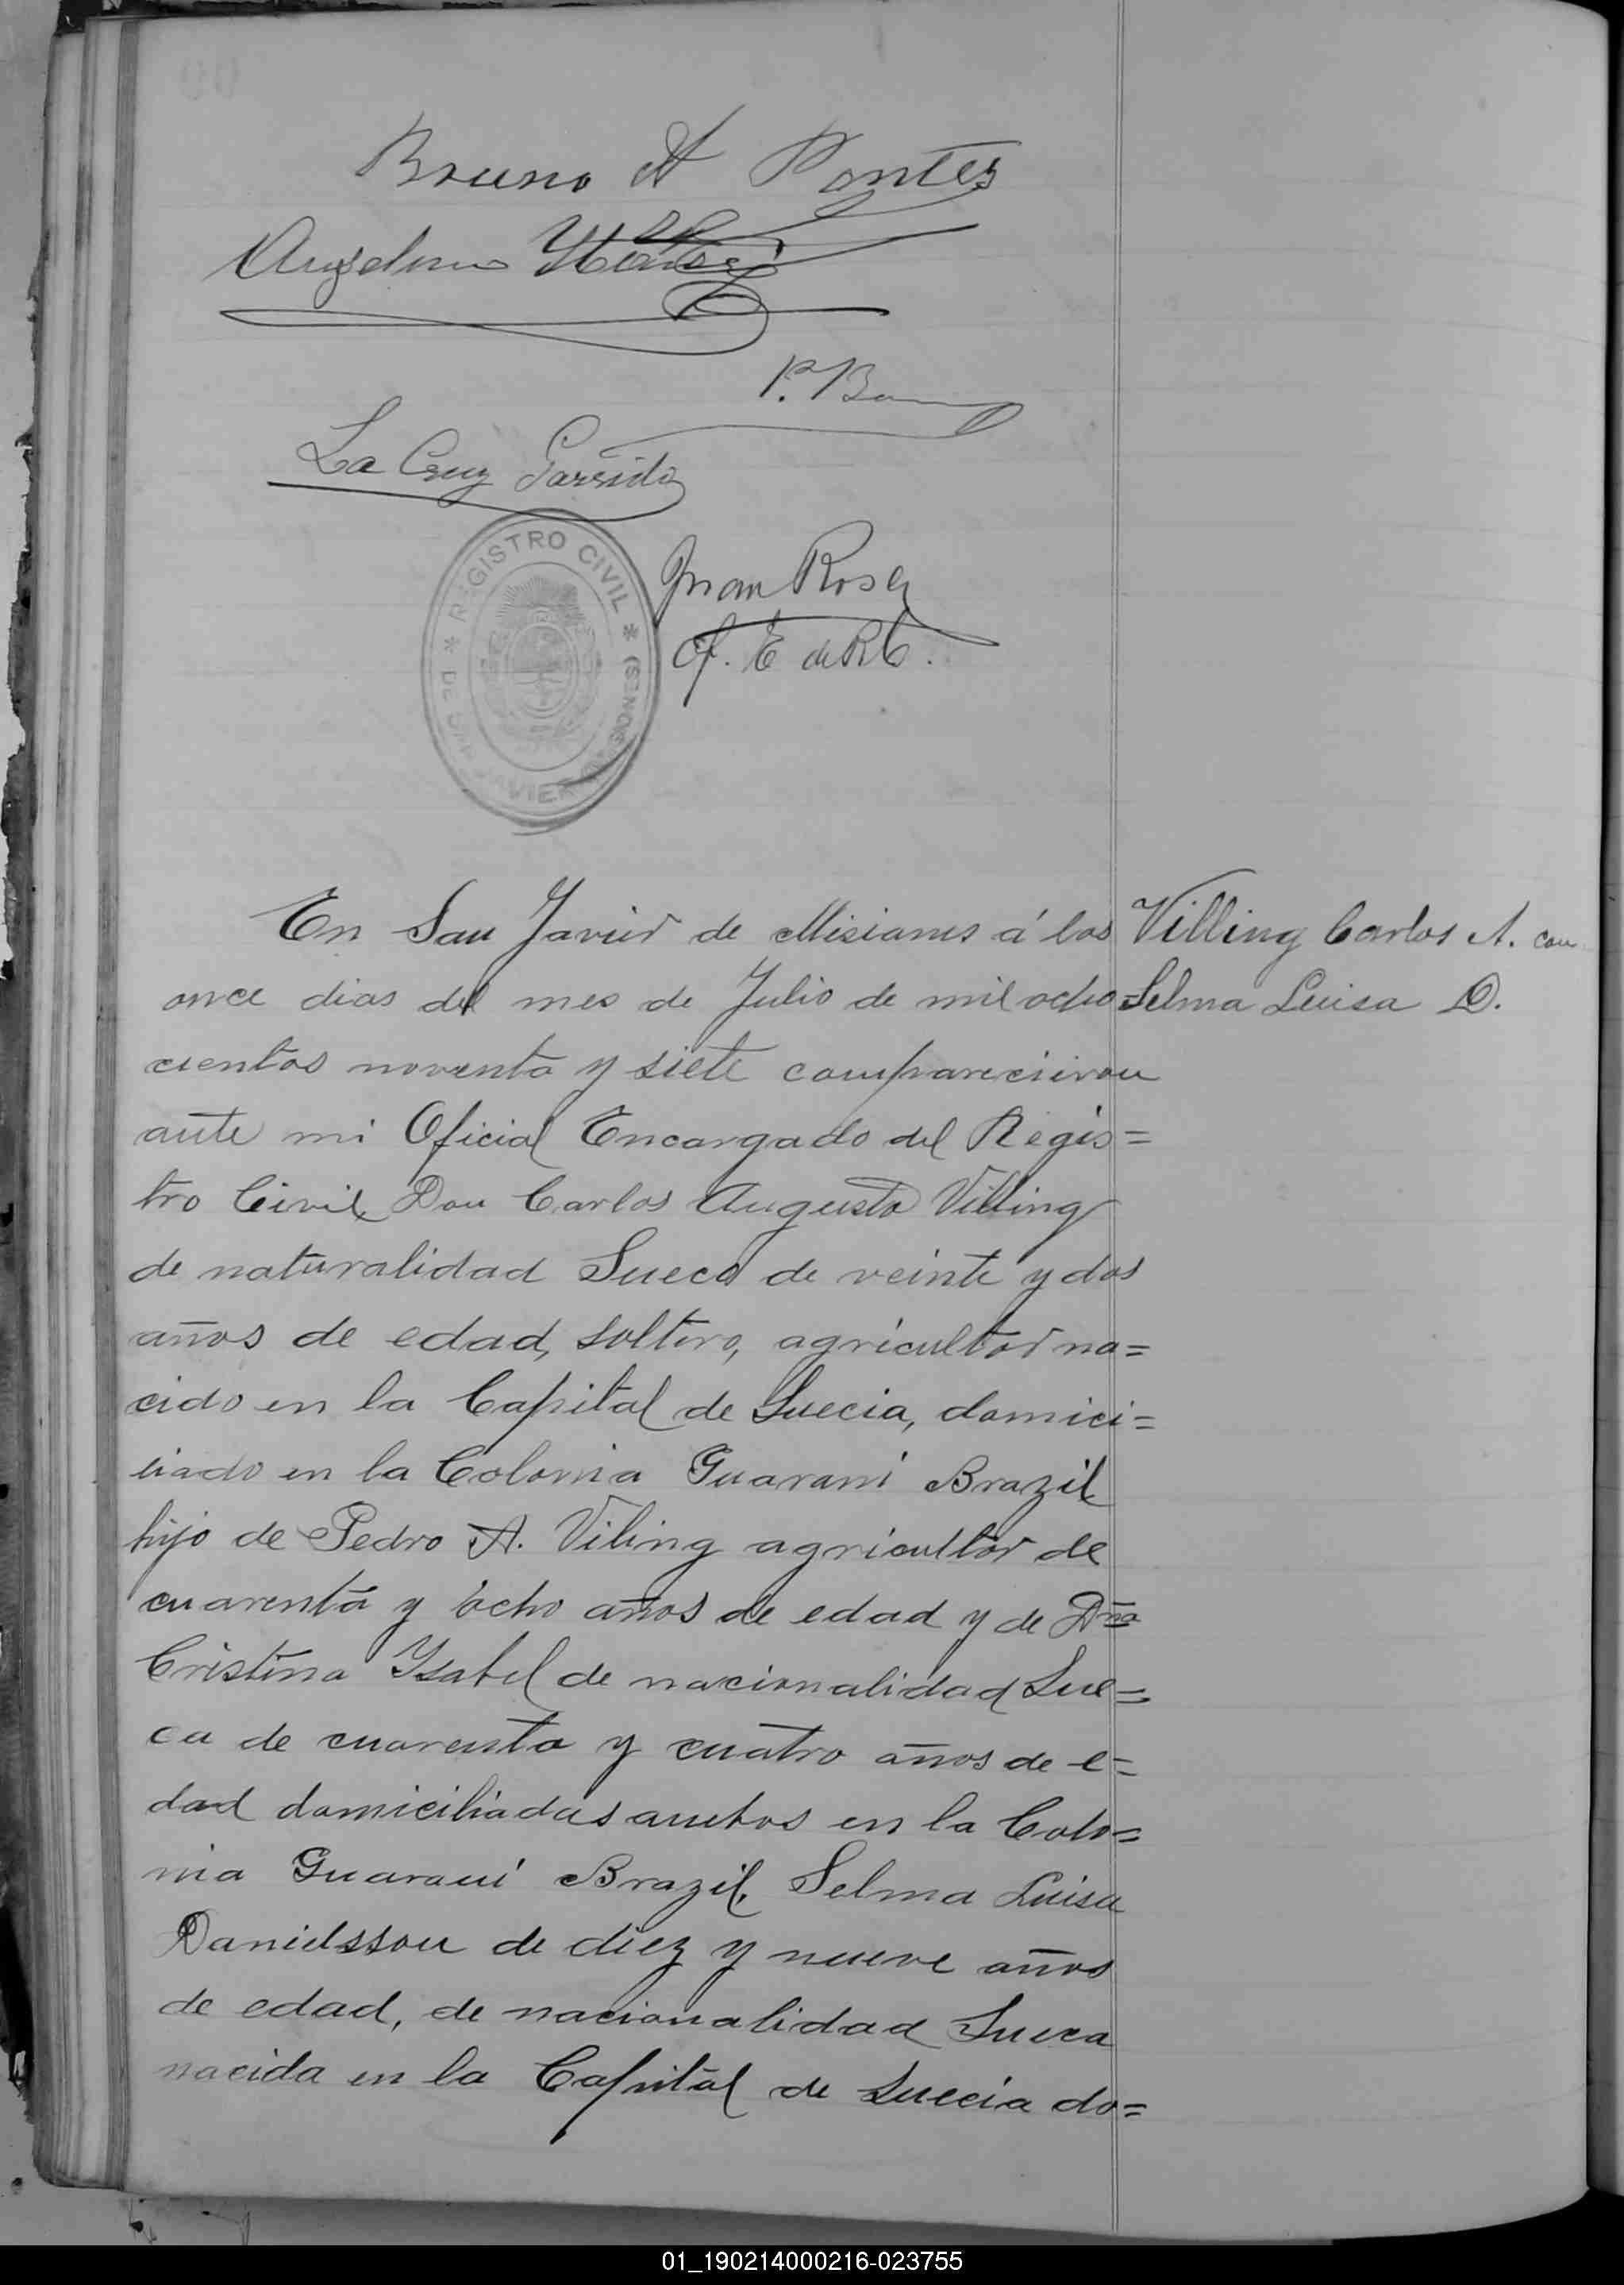 Bruno A Pontes
Anselmo
P. Bam
La Cruz Garrido
REGISTRO CIVIL * (MISIONES)
* DE SAN JAVIER
Juan Rosa
Of. E de RC.
En San Javier de Misiones á los
once dias del mes de Julio de mil ocho
cientos noventa y siete comparecieron
ante mi Oficial Encargado del Regis=
tro Civil Don Carlos Augusto Villing
de naturalidad Sueco de veinte y dos
años de edad, soltero, agricultor na=
cido en la Capital de Suecia, domici=
liado en la Colonia Guarani Brazil
hijo de Pedro A. Viling agricultor de
cuarenta y ocho años de edad y de Dña
Cristina Ysabel de nacionalidad Sue=
ca de cuarenta y cuatro años de e=
dad domiciliadas ambos en la Colo=
nia Guarani Brazil, Selma Luisa
Danielsson de diez y nueve años
de edad, de nacionalidad Sueca
nacida en la Capital de Suecia do=
Villing Carlos A. con
Selma Luisa D.
01_190214000216-023755